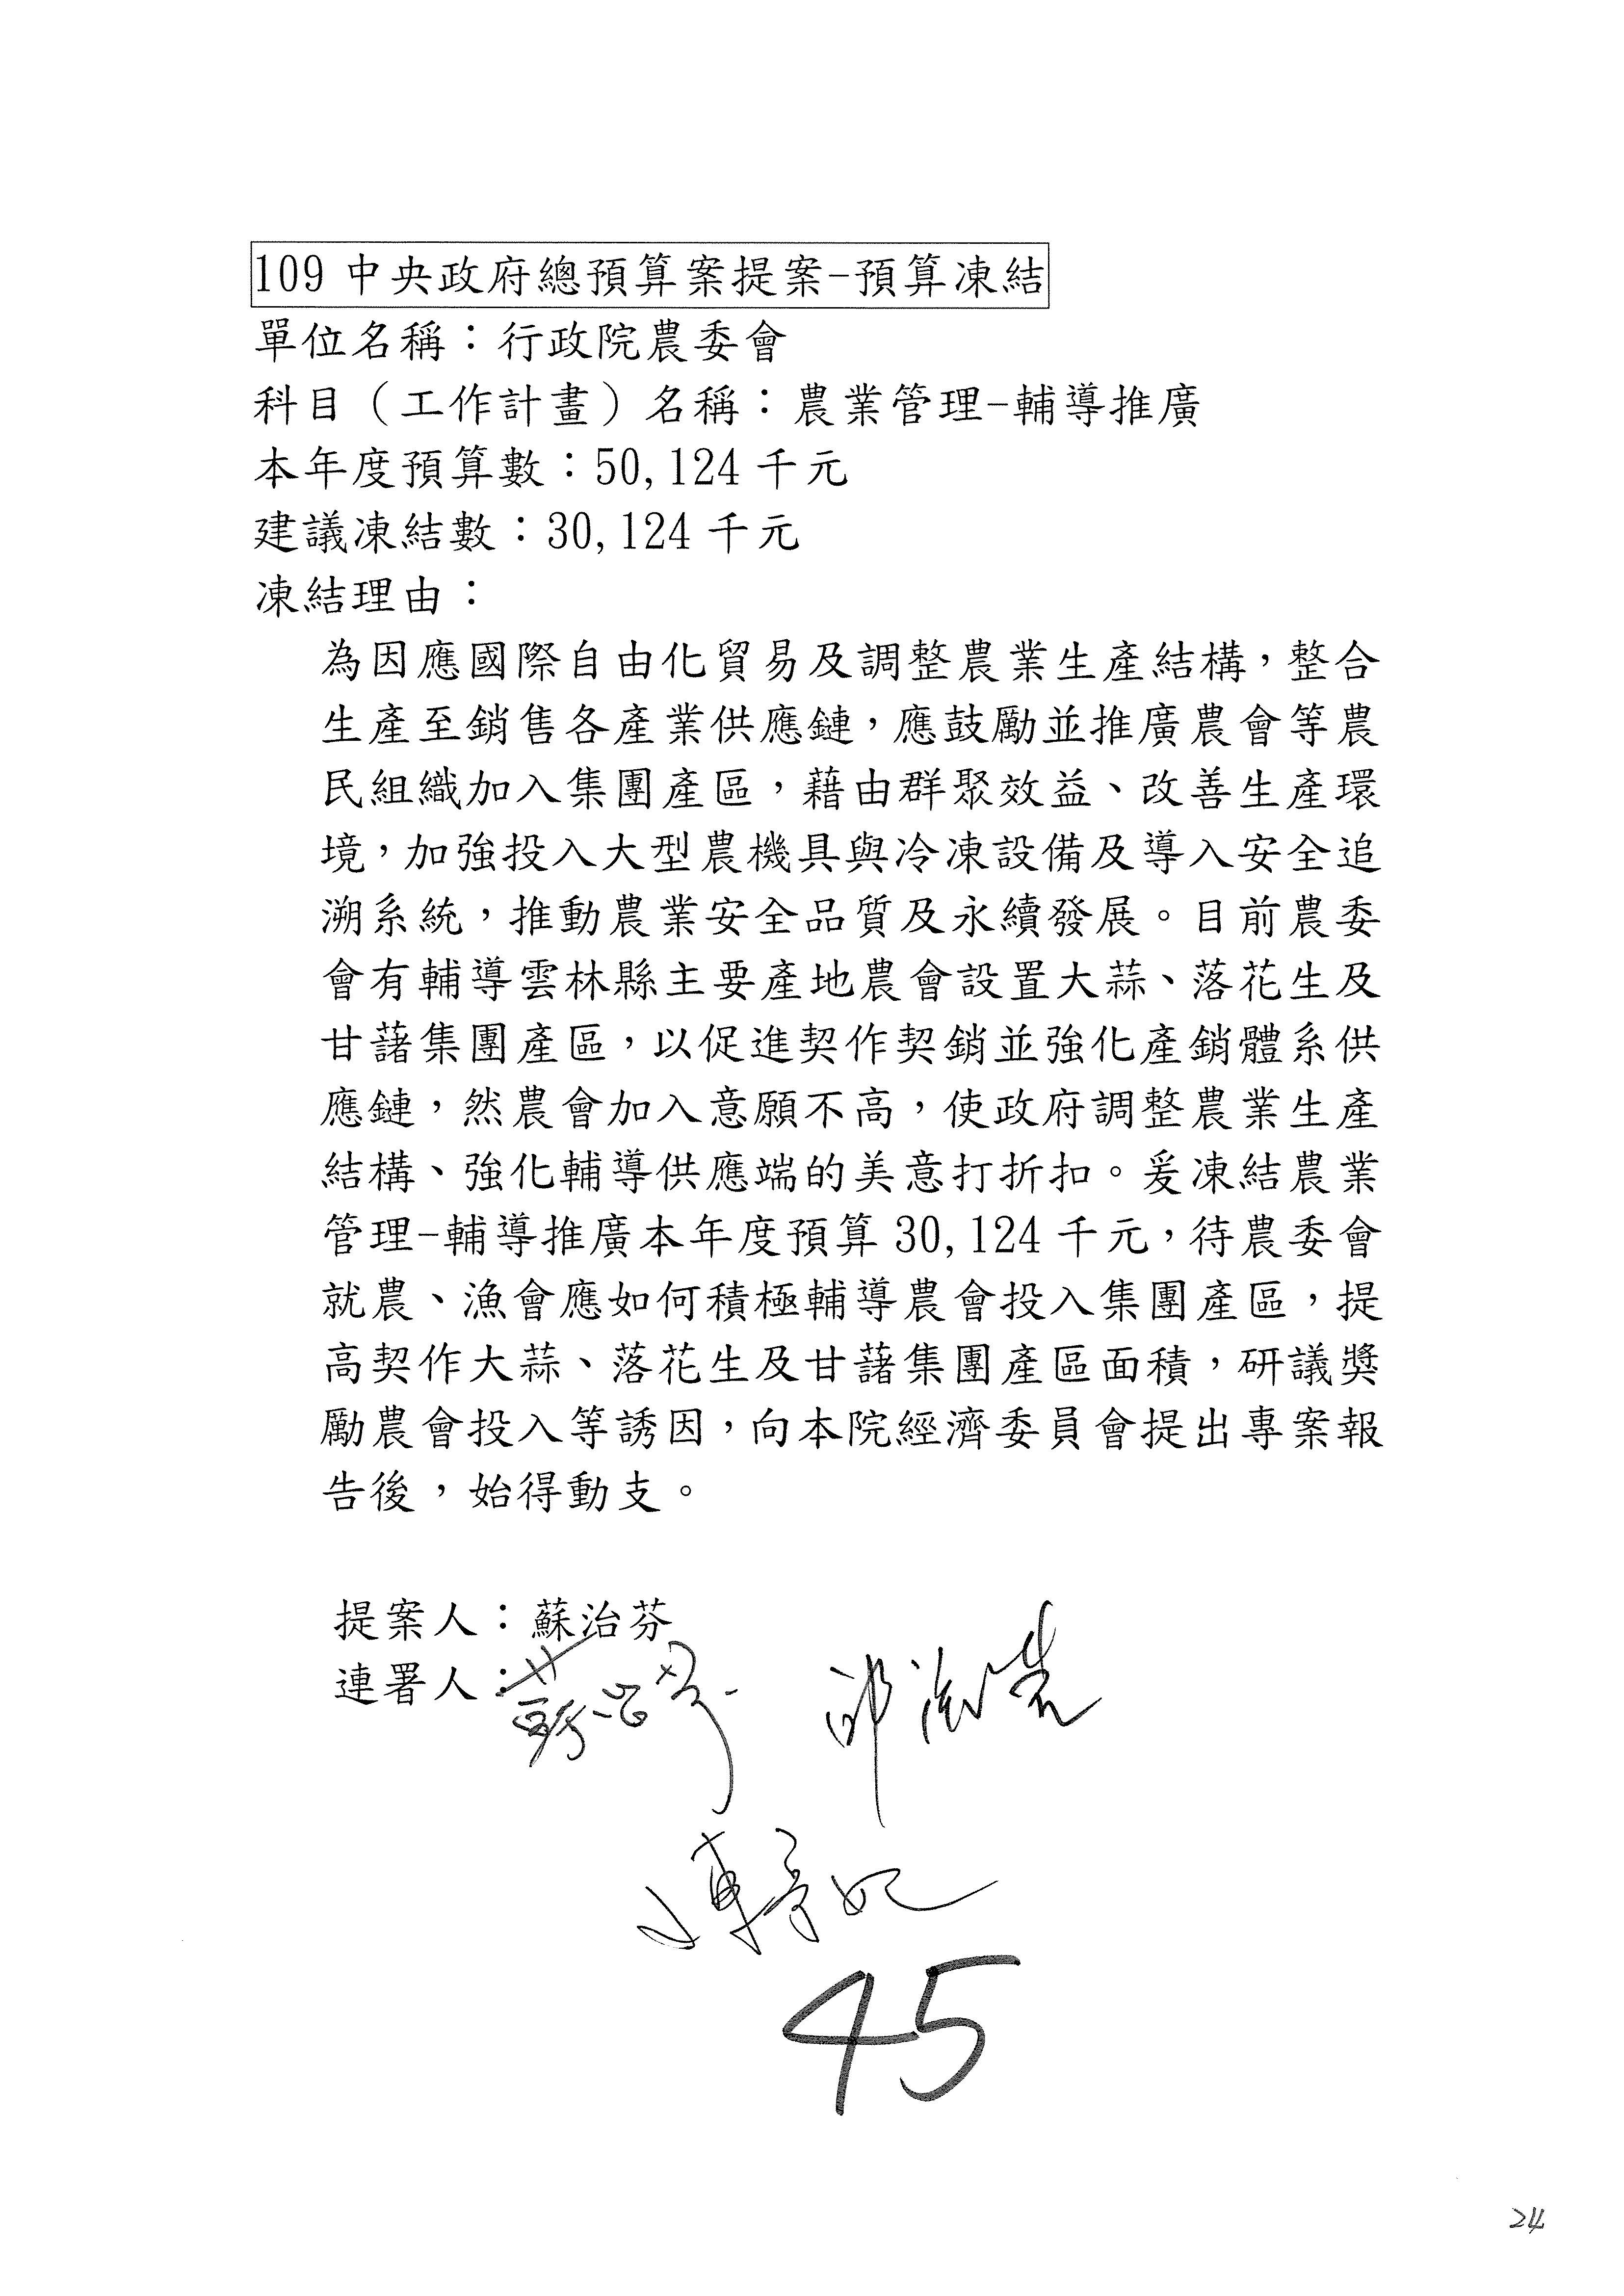 109 中央政府總預算案提案-預算凍結
單位名稱：行政院農委會
科目（工作計畫）名稱：農業管理-輔導推廣
本年度預算數：50,124 千元
建議凍結數：30,124 千元
凍結理由：
為因應國際自由化貿易及調整農業生產結構，整合
生產至銷售各產業供應鏈，應鼓勵並推廣農會等農
民組織加入集團產區，藉由群聚效益、改善生產環
境，加強投入大型農機具與冷凍設備及導入安全追
溯系統，推動農業安全品質及永續發展。目前農委
會有輔導雲林縣主要產地農會設置大蒜、落花生及
甘藷集團產區，以促進契作契銷並強化產銷體系供
應鏈，然農會加入意願不高，使政府調整農業生產
結構、強化輔導供應端的美意打折扣。爰凍結農業
管理-輔導推廣本年度預算 30,124 千元，待農委會
就農、漁會應如何積極輔導農會投入集團產區，提
高契作大蒜、落花生及甘藷集團產區面積，研議獎
勵農會投入等誘因，向本院經濟委員會提出專案報
告後，始得動支。
提案人：蘇治芬
連署人：
蘇治芬
45
24